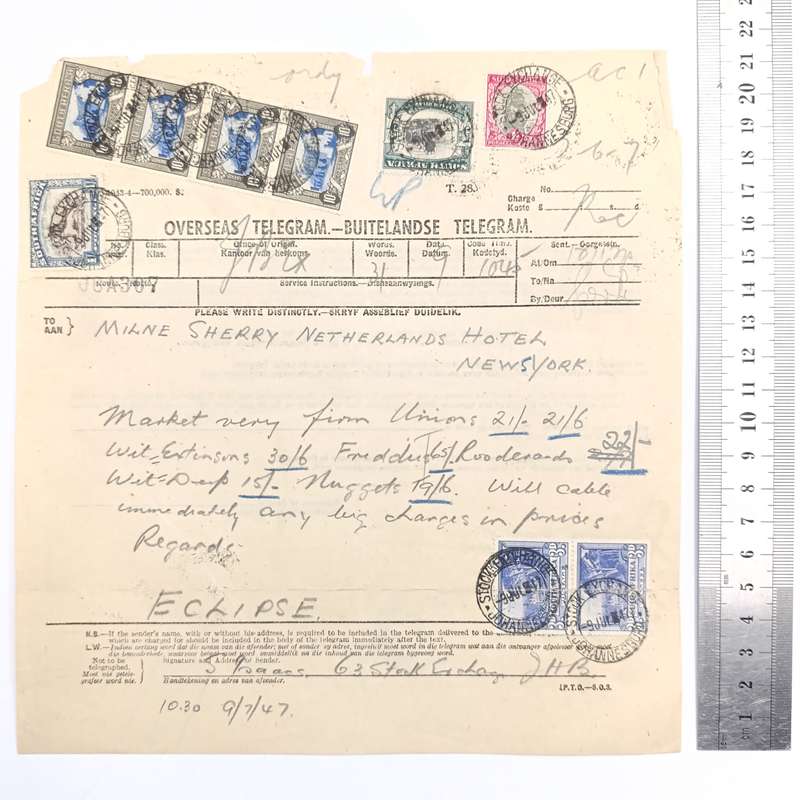 ordy
T. 28.
No.
Charge
Koste £ s. d.
OVERSEAS TELEGRAM.—BUITELANDSE TELEGRAM.
No. Class. Office of Origin. Words. Date. Code Time. Sent.—Gestuur.
No. Klas. Kantoor van herkoms. Woorde. Datum. Kodetyd.
31 9 1045 At/Om
To/Na
Service Instructions.—Diensaanwysings. By/Deur
JSA307
PLEASE WRITE DISTINCTLY.—SKRYF ASSEBLIEF DUIDELIK.
TO
AAN } MILNE SHERRY NETHERLANDS HOTEL
NEWYORK.
Market very firm Unions 21/- 21/6
Wit-Extinsons 30/6 Freddies 65/- Rooderands 22/-
Wit-Deep 15/- Nuggets 19/6. Will cable
immediately any big changes in prices
Regards
ECLIPSE.
STOCK EXCHANGE
-9 JUL 47
JOHANNESBURG
N.B.—If the sender's name, with or without his address, is required to be included in the telegram delivered to the
which are charged for should be included in the body of the telegram immediately after the text.
L.W.—Indien verlang word dat die naam van die afsender, met of sonder sy adres, ingesluit moet word in die telegram wat aan die ontvanger afgelewer moet
Not to be
telegraphed.
Moet nie getele-
grafeer word nie.
Signature and Address of Sender.
Isaacs 63 Stock Exchange JHB.
Handtekening en adres van afsender.
[P.T.O.—S.O.S.
10.30 9/7/47.
cm 1 2 3 4 5 6 7 8 9 10 11 12 13 14 15 16 17 18 19 20 21 22